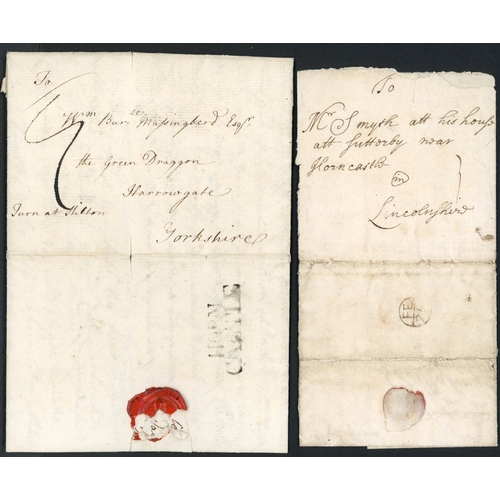 To
Wm Burll Massingberd Esqr.
the Green Draggon
Harrowgate
Turn at Stilton
Yorkshire
HORN
CASTLE
To
Mr Smyth att his house
att Sutterby near
Horncastle
in
Lincolnshire
FE